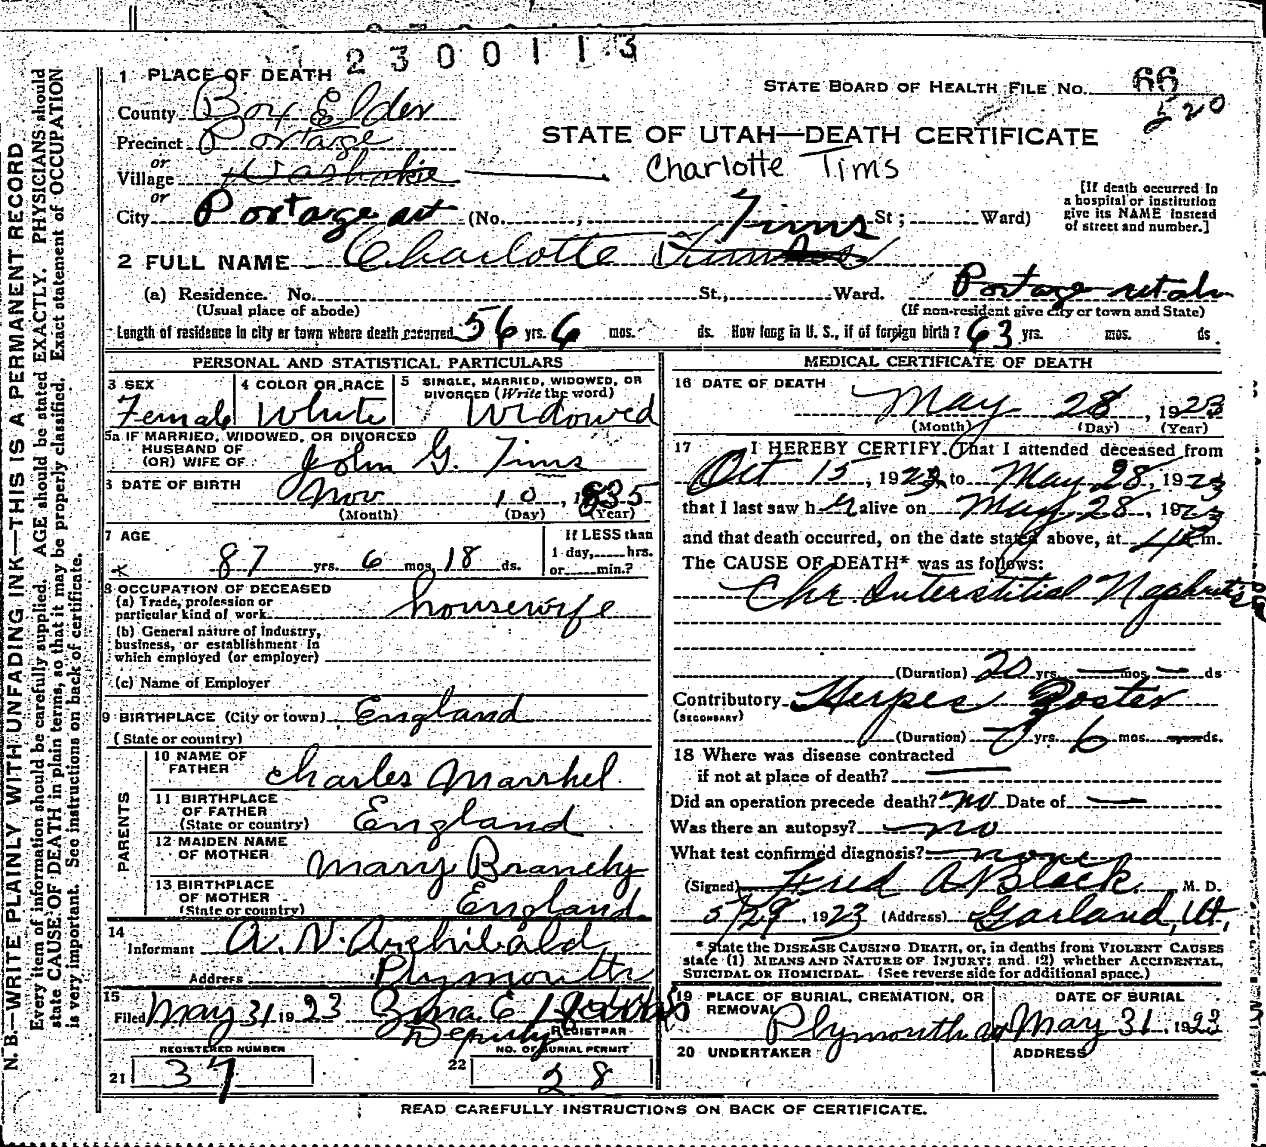 2300113
1 PLACE OF DEATH
STATE BOARD OF HEALTH FILE NO. 66
520
County Box Elder
Precinct Portage
STATE OF UTAH—DEATH CERTIFICATE
or
Village Washakie
Charlotte Tims
or
City Portage ut (No. St; Ward)
[If death occurred in
a hospital or institution
give its NAME instead
of street and number.]
Tims
2 FULL NAME Charlotte
(a) Residence. No. St., Ward. Portage utah
(Usual place of abode) (If non-resident give city or town and State)
Length of residence in city or town where death occurred 56 yrs. 6 mos. ds. How long in U. S., if of foreign birth? 63 yrs. mos. ds.
PERSONAL AND STATISTICAL PARTICULARS
3 SEX Female
4 COLOR OR RACE White
5 SINGLE, MARRIED, WIDOWED, OR
DIVORCED (Write the word)
Widowed
5a IF MARRIED, WIDOWED, OR DIVORCED
HUSBAND OF
(OR) WIFE OF John G. Tims
6 DATE OF BIRTH Nov 10, 1835
(Month) (Day) (Year)
7 AGE
87 yrs. 6 mos. 18 ds.
If LESS than
1 day, hrs.
or min.?
8 OCCUPATION OF DECEASED
(a) Trade, profession or
particular kind of work housewife
(b) General nature of industry,
business, or establishment in
which employed (or employer)
(c) Name of Employer
9 BIRTHPLACE (City or town) England
(State or country)
PARENTS
10 NAME OF
FATHER Charles Marshel
11 BIRTHPLACE
OF FATHER
(State or country) England
12 MAIDEN NAME
OF MOTHER Mary Branch
13 BIRTHPLACE
OF MOTHER
(State or country) England.
14
Informant A. N. Archibald
Address Plymouth
15
Filed May 31 1923 Zina E
Deputy REGISTRAR
REGISTERED NUMBER
21 37
NO. OF BURIAL PERMIT
22 28
MEDICAL CERTIFICATE OF DEATH
16 DATE OF DEATH
May 28, 1923
(Month) (Day) (Year)
17 I HEREBY CERTIFY, That I attended deceased from
Oct 15, 1923, to May 28, 1923
that I last saw her alive on May 28, 1923
and that death occurred, on the date stated above, at 4 m.
The CAUSE OF DEATH* was as follows:
Chr. Interstitial Nephritis
(Duration) 20 yrs. — mos. — ds
Contributory Herpes Zoster
(SECONDARY)
(Duration) yrs. 6 mos. — ds.
18 Where was disease contracted
if not at place of death? —
Did an operation precede death? no Date of —
Was there an autopsy? no
What test confirmed diagnosis? none
(Signed) Fred A Black, M. D.
5/29, 1923 (Address) Garland, Ut,
* State the DISEASE CAUSING DEATH, or, in deaths from VIOLENT CAUSES
state (1) MEANS AND NATURE OF INJURY; and (2) whether ACCIDENTAL,
SUICIDAL OR HOMICIDAL. (See reverse side for additional space.)
19 PLACE OF BURIAL, CREMATION, OR
REMOVAL
Plymouth ut
DATE OF BURIAL
May 31, 1923
20 UNDERTAKER
ADDRESS
READ CAREFULLY INSTRUCTIONS ON BACK OF CERTIFICATE.
N. B.—WRITE PLAINLY WITH UNFADING INK—THIS IS A PERMANENT RECORD
Every item of information should be carefully supplied. AGE should be stated EXACTLY. PHYSICIANS should
state CAUSE OF DEATH in plain terms, so that it may be properly classified. Exact statement of OCCUPATION
is very important. See instructions on back of certificate.